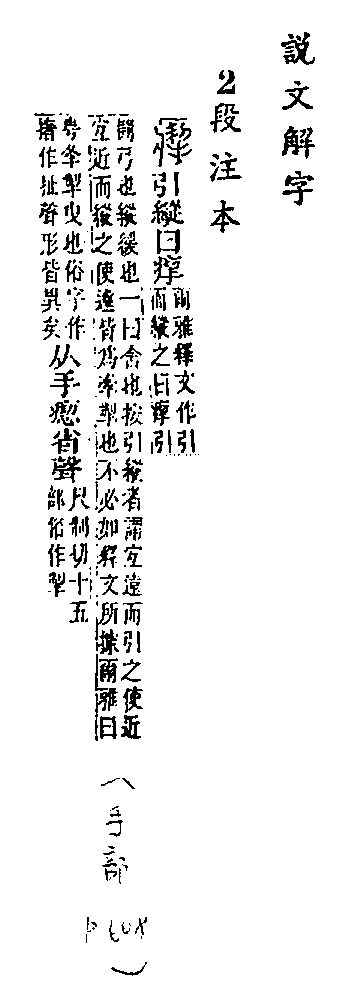 說文解字
2段注本
引縱曰
爾雅釋文作引
而縱之曰引
開弓也縱緩也一曰舍也按引縱者謂宜遠而引之使近
宜近而縱之使遠皆爲牽掣也不必如釋文所據爾雅曰
甹夆掣曳也俗字作
撦作扯聲形皆異矣
从手瘛省聲
尺制切十五
部俗作掣
(手部
P608)